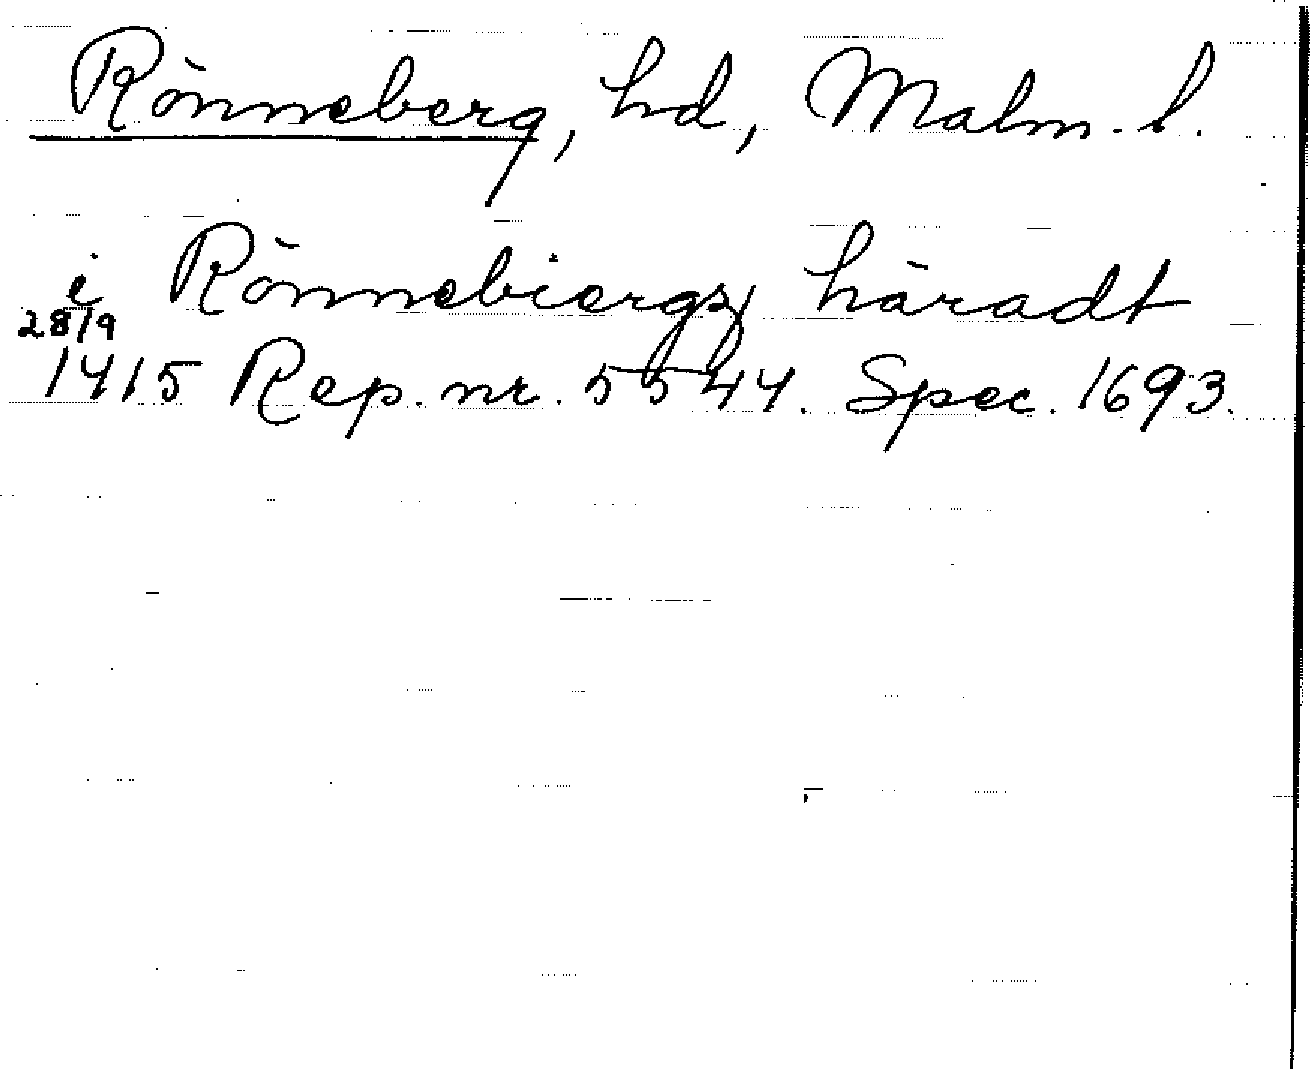 Rönneberg, hd, Malm. l.
i Rönnebiergz häradt
28/9
1415 Rep. nr. 5544. Spec. 1693.